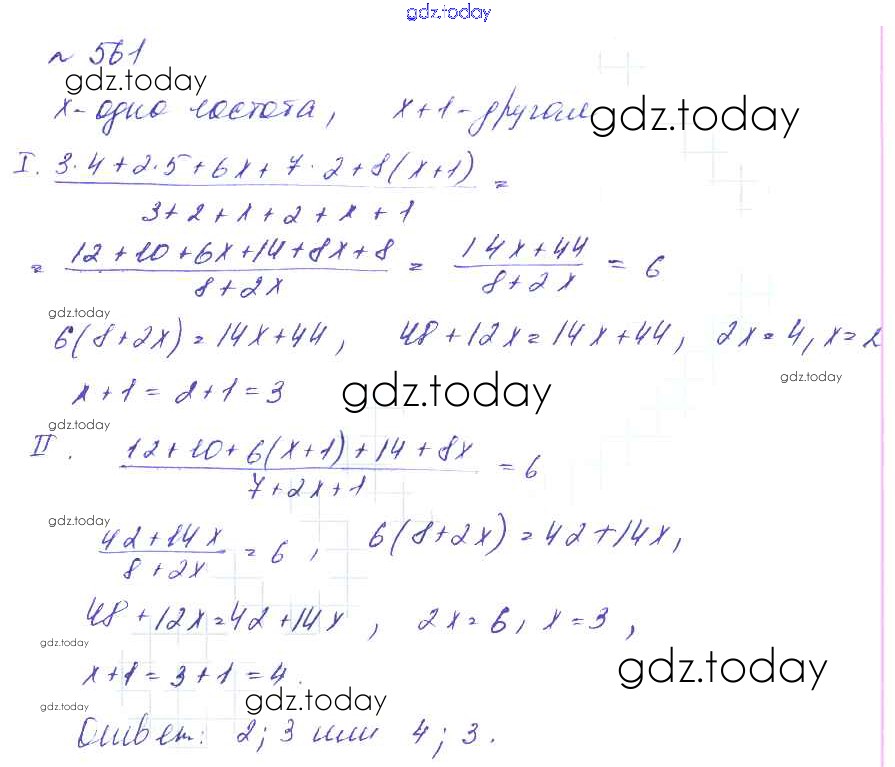 gdz.today
№ 561
gdz.today
x - одна частота, x+1 - другая
gdz.today
I. (3·4+2·5+6x+7·2+8(x+1))/(3+2+x+2+x+1) =
= (12+10+6x+14+8x+8)/(8+2x) = (14x+44)/(8+2x) = 6
gdz.today
6(8+2x)=14x+44, 48+12x=14x+44, 2x=4, x=2
gdz.today
x+1=2+1=3
gdz.today
gdz.today
II. (12+10+6(x+1)+14+8x)/(7+2x+1) = 6
gdz.today
(42+14x)/(8+2x) = 6, 6(8+2x)=42+14x,
48+12x=42+14x, 2x=6, x=3,
gdz.today
gdz.today
x+1=3+1=4.
gdz.today
gdz.today
Ответ: 2; 3 или 4; 3.